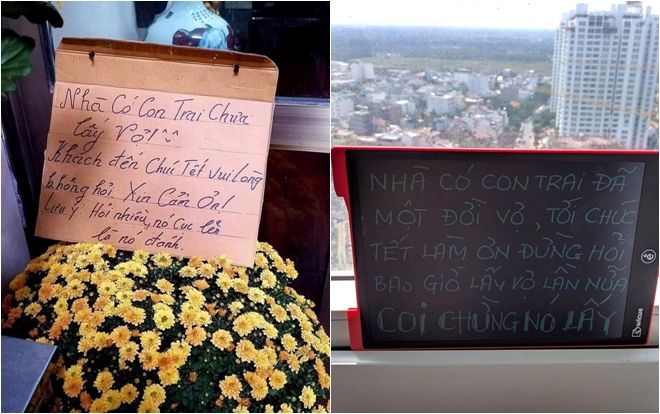 Nhà Có Con Trai Chưa
Lấy Vợ!
Khách đến Chúc Tết Vui Lòng
không hỏi. Xin Cảm Ơn!
Lưu ý: Hỏi nhiều, nó cục lên
là nó đánh.
NHÀ CÓ CON TRAI ĐÃ
MỘT ĐỜI VỢ TỚI CHÚC
TẾT LÀM ƠN ĐỪNG HỎI
BAO GIỜ LẤY VỢ LẦN NỮA
COI CHỪNG NÓ LẤY
wicue